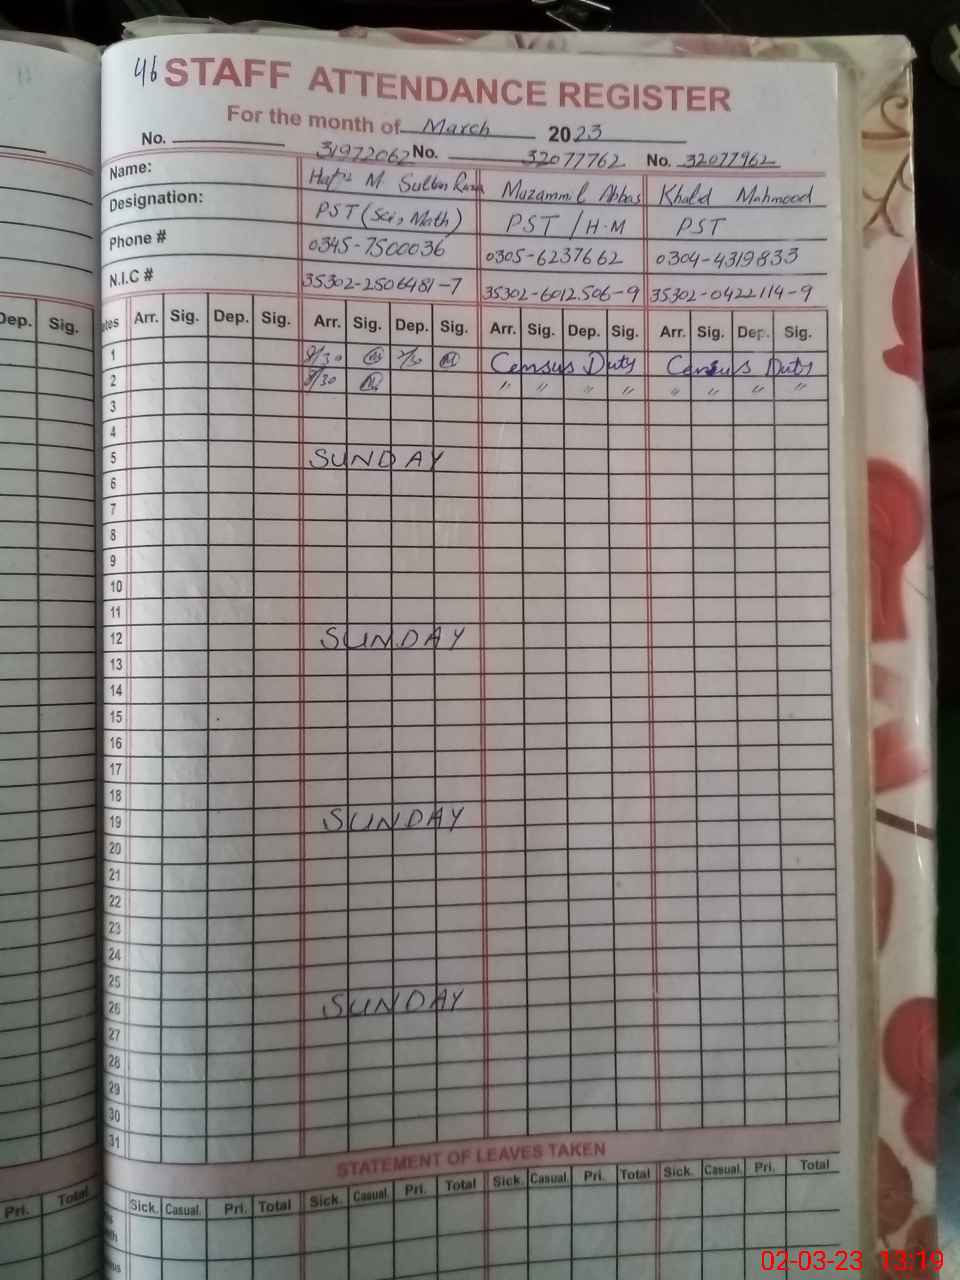 46 STAFF ATTENDANCE REGISTER
For the month of March 2023
No. 31972062 No. 32077762 No. 32077962
Name: Hafiz M. Sultan Raza Muzammil Abbas Khalid Mahmood
Designation: PST (Sci, Math) PST / H.M PST
Phone # 0345-7500036 0305-6237662 0304-4319833
N.I.C # 35302-2506481-7 35302-6012506-9 35302-0422114-9
Dep. Sig. Arr. Sig. Dep. Sig. Arr. Sig. Dep. Sig. Arr. Sig. Dep. Sig. Arr. Sig. Dep. Sig.
1 8/30 Census Duty Census Duty
2 8/30 " " " " " " " "
3
4
5 SUNDAY
6
7
8
9
10
11
12 SUNDAY
13
14
15
16
17
18
19 SUNDAY
20
21
22
23
24
25
26 SUNDAY
27
28
29
30
31
STATEMENT OF LEAVES TAKEN
Pri. Total Sick. Casual. Pri. Total Sick. Casual. Pri. Total Sick. Casual. Pri. Total Sick. Casual. Pri. Total
02-03-23 13:19